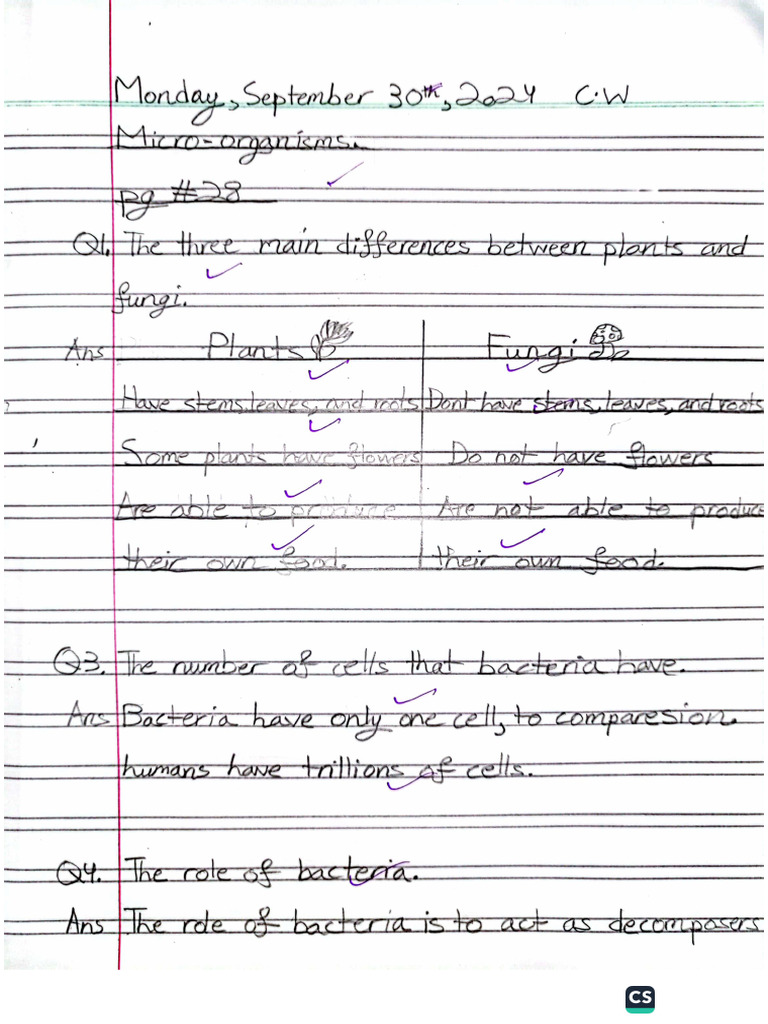 Monday, September 30th, 2024 C.W
Micro-organisms.
pg #28
Q1. The three main differences between plants and
fungi.
Ans Plants Fungi
Have stems, leaves, and roots Dont have stems, leaves, and roots
Some plants have flowers Do not have flowers
Are able to produce Are not able to produce
their own food. their own food.
Q3. The number of cells that bacteria have.
Ans Bacteria have only one cell, to comparesion.
humans have trillions of cells.
Q4. The role of bacteria.
Ans The role of bacteria is to act as decomposers
CS